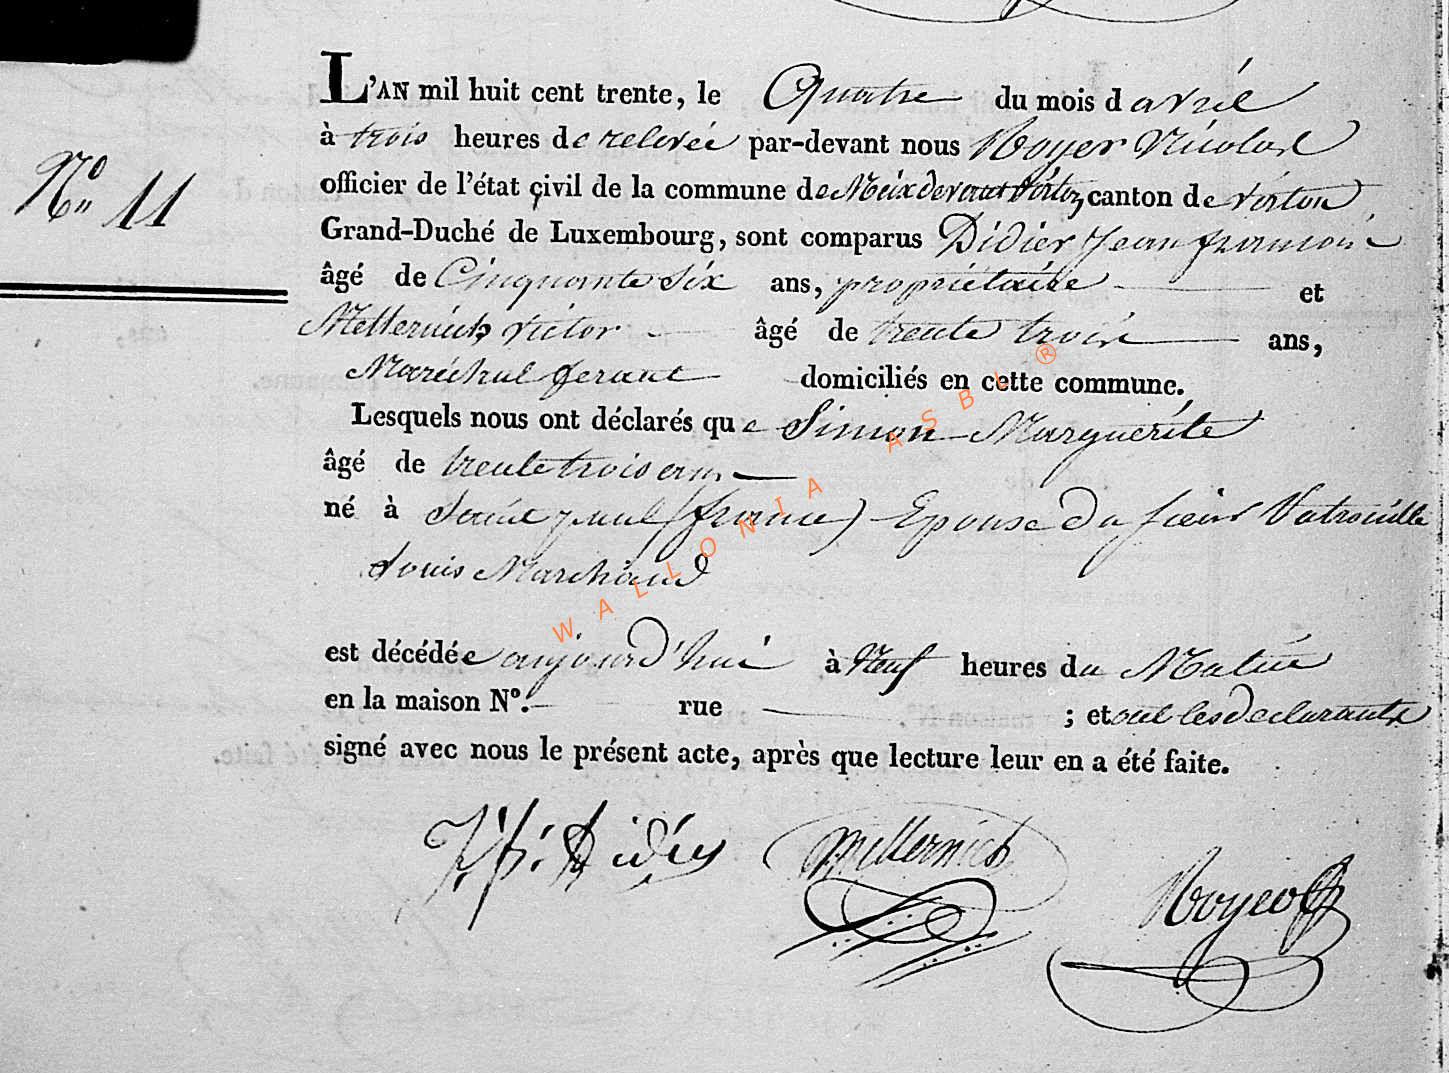 L'AN mil huit cent trente, le Quatre du mois d avril
à trois heures de relevée par-devant nous Noyer Nicolas
officier de l'état çivil de la commune de Meix devant Virton canton de virton
Grand-Duché de Luxembourg, sont comparus Didier Jean françois
N° 11
âgé de Cinquante Six ans, propriétaire et
Metternich victor âgé de trente trois ans,
Maréchal ferant domiciliés en cette commune.
Lesquels nous ont déclarés que Simon Marguérite
âgé de trente trois ans
né à Saint paul (france) Epouse du sieur Vatrouille
Louis Marchand
est décédée aujourd'hui à Neuf heures du Matin
en la maison N°. rue ; et ont les declarants
signé avec nous le présent acte, après que lecture leur en a été faite.
J. f. Didier Metternich Noyer
WALLONIA ASBL ®